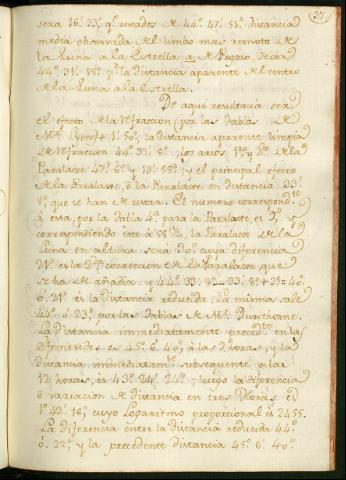 37
sera 16'. 33", qe. restados de 44°. 47'. 51". distancia
media observada del limbo mas remoto de
la Luna a la Estrella a de Pegaso, dexa
44°. 31'. 18". y la distancia aparente del centro
de la Luna a la Estrella.
De aqui resultaria ser
el efecto de la refraccion (por las tablas de
Mr. Lyon) + 1'. 50"; la distancia aparente limpia
de refraccion 44°. 33'. 8"; los arcos 1°. y 2°. de la
Paralaxe 47'. 6". y 13'. 58"; y el principal efecto
de la Paralaxe, ó la Paralaxe en distancia 33'.
8", que se han de restar. El numero correspondte.
à esta, por la tabla 4a. para la Paralaxe, es
correspondiendo este à 58'. la Paralaxe de la
Luna en altura sera cuya diferencia
21". es la 2da. correccion de la Paralaxe, que
se ha de añadir y 44°. 33'. 8" – 33'. 8" + 21" = 44°.
0'. 21". es la distancia reducida. La misma sale
44°. 0'. 23". por las tablas de Mr. Dunthorne.
La distancia immediatamente precedte. en las
Efemerides es 45°. 6'. 40", à las 9 horas, y la
distancia immediatamte. subsequente a las
12 horas, es 43°. 24'. 24"; luego la diferencia
ó variacion de distancia en tres horas es
1°. 42'. 16", cuyo Logaritmo proporcional es 2455.
La diferencia entre la distancia reducida 44°.
0'. 22", y la precedente distancia 45°. 6'. 40".